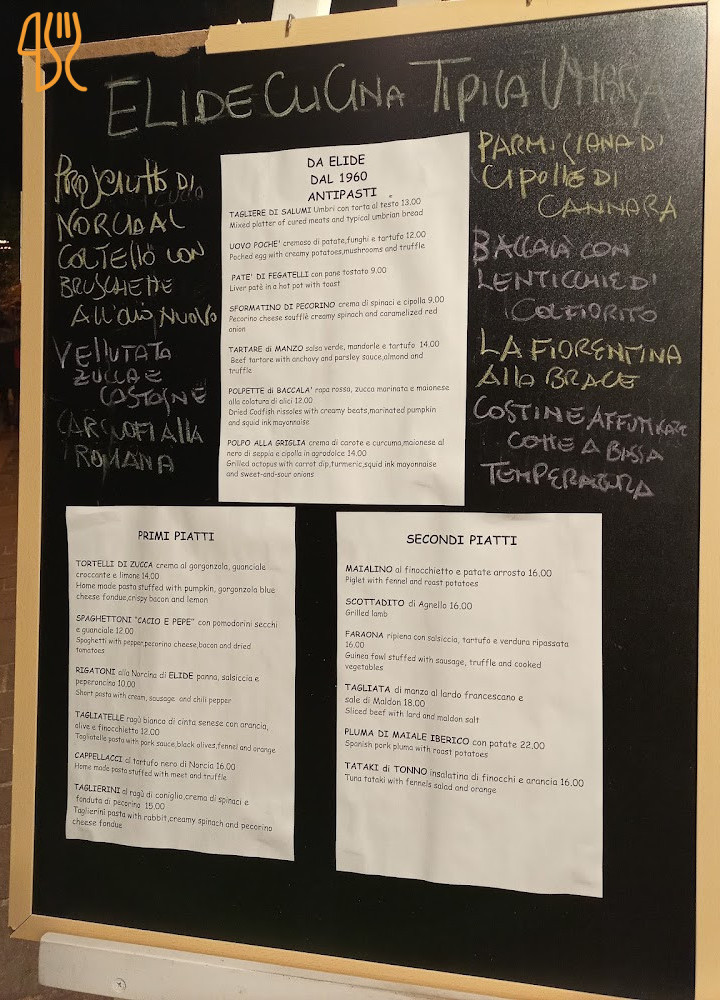 ELIDE CUCINA TIPICA UMBRA
PROSCIUTTO DI
NORCIA AL
COLTELLO CON
BRUSCHETTE
ALL'OLIO NUOVO
VELLUTATA
ZUCCA E
CASTAGNE
CARCIOFI ALLA
ROMANA
DA ELIDE
DAL 1960
ANTIPASTI
TAGLIERE DI SALUMI Umbri con torta al testo 13.00
Mixed platter of cured meats and typical umbrian bread
UOVO POCHE' cremoso di patate,funghi e tartufo 12.00
Poched egg with creamy potatoes,mushrooms and truffle
PATE' DI FEGATELLI con pane tostato 9.00
Liver patè in a hot pot with toast
SFORMATINO DI PECORINO crema di spinaci e cipolla 9.00
Pecorino cheese soufflè creamy spinach and caramelized red
onion
TARTARE di MANZO salsa verde, mandorle e tartufo 14.00
Beef tartare with anchovy and parsley sauce,almond and
truffle
POLPETTE di BACCALA' rapa rossa, zucca marinata e maionese
alla colatura di alici 12.00
Dried Codfish rissoles with creamy beats,marinated pumpkin
and squid ink mayonnaise
POLPO ALLA GRIGLIA crema di carote e curcuma,maionese al
nero di seppia e cipolla in agrodolce 14.00
Grilled octopus with carrot dip,turmeric,squid ink mayonnaise
and sweet-and-sour onions
PARMIGIANA DI
CIPOLLE DI
CANNARA
BACCALÀ CON
LENTICCHIE DI
COLFIORITO
LA FIORENTINA
ALLA BRACE
COSTINE AFFUMICATE
COTTE A BASSA
TEMPERATURA
PRIMI PIATTI
TORTELLI DI ZUCCA crema al gorgonzola, guanciale
croccante e limone 14.00
Home made pasta stuffed with pumpkin, gorgonzola blue
cheese fondue,crispy bacon and lemon
SPAGHETTONI "CACIO E PEPE" con pomodorini secchi
e guanciale 12.00
Spaghetti with pepper,pecorino cheese,bacon and dried
tomatoes
RIGATONI alla Norcina di ELIDE panna, salsiccia e
peperoncino 10.00
Short pasta with cream, sausage and chili pepper
TAGLIATELLE ragù bianco di cinta senese con arancia,
olive e finocchietto 12.00
Tagliatelle pasta with pork sauce,black olives,fennel and orange
CAPPELLACCI al tartufo nero di Norcia 16.00
Home made pasta stuffed with meet and truffle
TAGLIERINI al ragù di coniglio,crema di spinaci e
fonduta di pecorino 15.00
Taglierini pasta with rabbit,creamy spinach and pecorino
cheese fondue
SECONDI PIATTI
MAIALINO al finocchietto e patate arrosto 16.00
Piglet with fennel and roast potatoes
SCOTTADITO di Agnello 16.00
Grilled lamb
FARAONA ripiena con salsiccia, tartufo e verdura ripassata
16.00
Guinea fowl stuffed with sausage, truffle and cooked
vegetables
TAGLIATA di manzo al lardo francescano e
sale di Maldon 18.00
Sliced beef with lard and maldon salt
PLUMA DI MAIALE IBERICO con patate 22.00
Spanish pork pluma with roast potatoes
TATAKI di TONNO insalatina di finocchi e arancia 16.00
Tuna tataki with fennels salad and orange